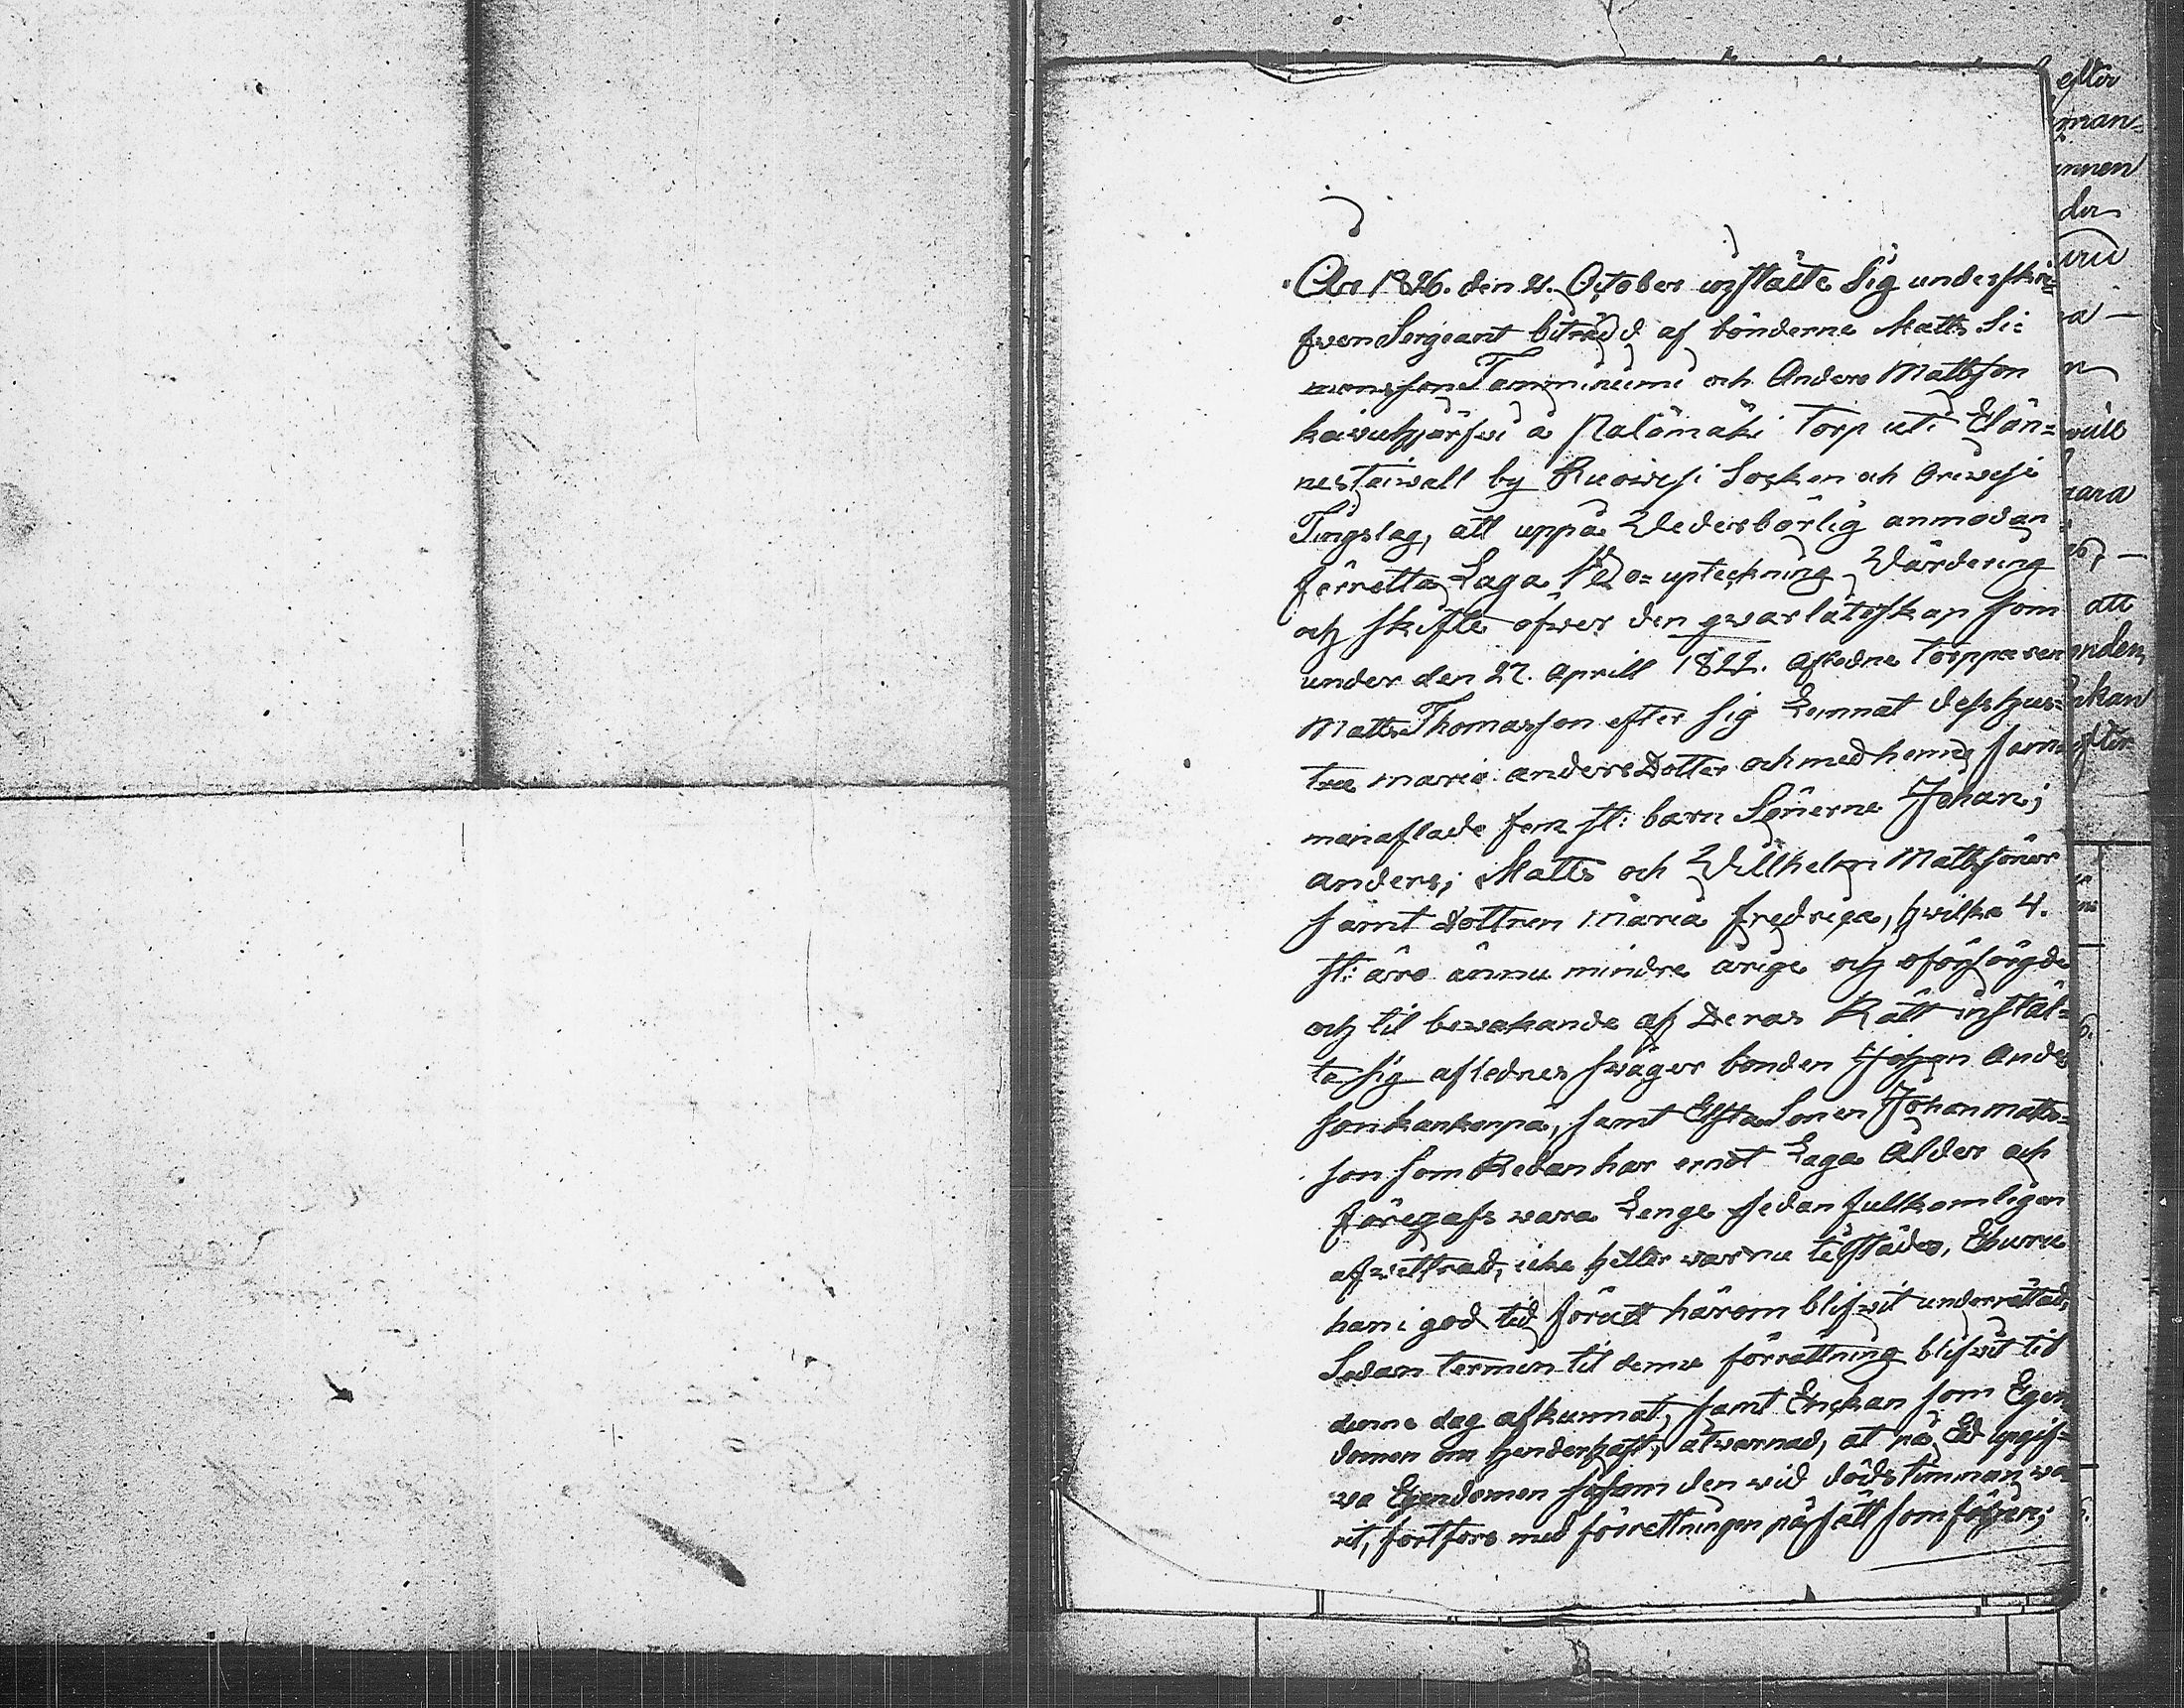 efter
man-
annen
der
Åhr 1826. den 21. October instälte Sig underskri=
fven Sergeant biträdd af bönderne Matts Si=
monsson Tamminiemi och Anders Mattsson
kaivuhjärfvi å Palomäki Torp uti Elän=
nestaiwall by Ruowesi Socken och Oriwesi
Tingslag, att uppå Wederbörlig anmodan
förretta Laga Bo=upteckning Wärdering
och skifte öfwer den qwarlåtskap som
under den 22. Aprill 1822. Afledne Torpparen
Matts Thomasson efter sig Lemnat dess hus=
tru Maria Anders Dotter och med henne sam=
manaflade fem st: barn Sönerne Johan;
Anders; Matts och Willhelm Mattssöner
samt dottren Maria Fredrica, hvilka 4.
st: äro ännu mindre årige och oförsörgde
och til bewakande af Deras Rätt instäl=
te sig aflednes swåger bonden Johan Anders
son kankanpä, samt Elsta Sonen Johan Matts=
son som Redan har ernåt Laga Ålder och
föregafs wara Lenge sedan fullkomligen
afwittrad, icke heller war nu tilstädes, Ehuru
han i god tid förutt härom blifwit underrättad;
Sedan termin til denna förrättning blifwit til
denne dag afkunnat, samt Enckan som Egen
domen om Henderhaft, åtwarnad, at på Ed upgif=
wa Egendomen såsom den wid dödstimman wa
rit, fortfors med förrettningen på sätt som följer;